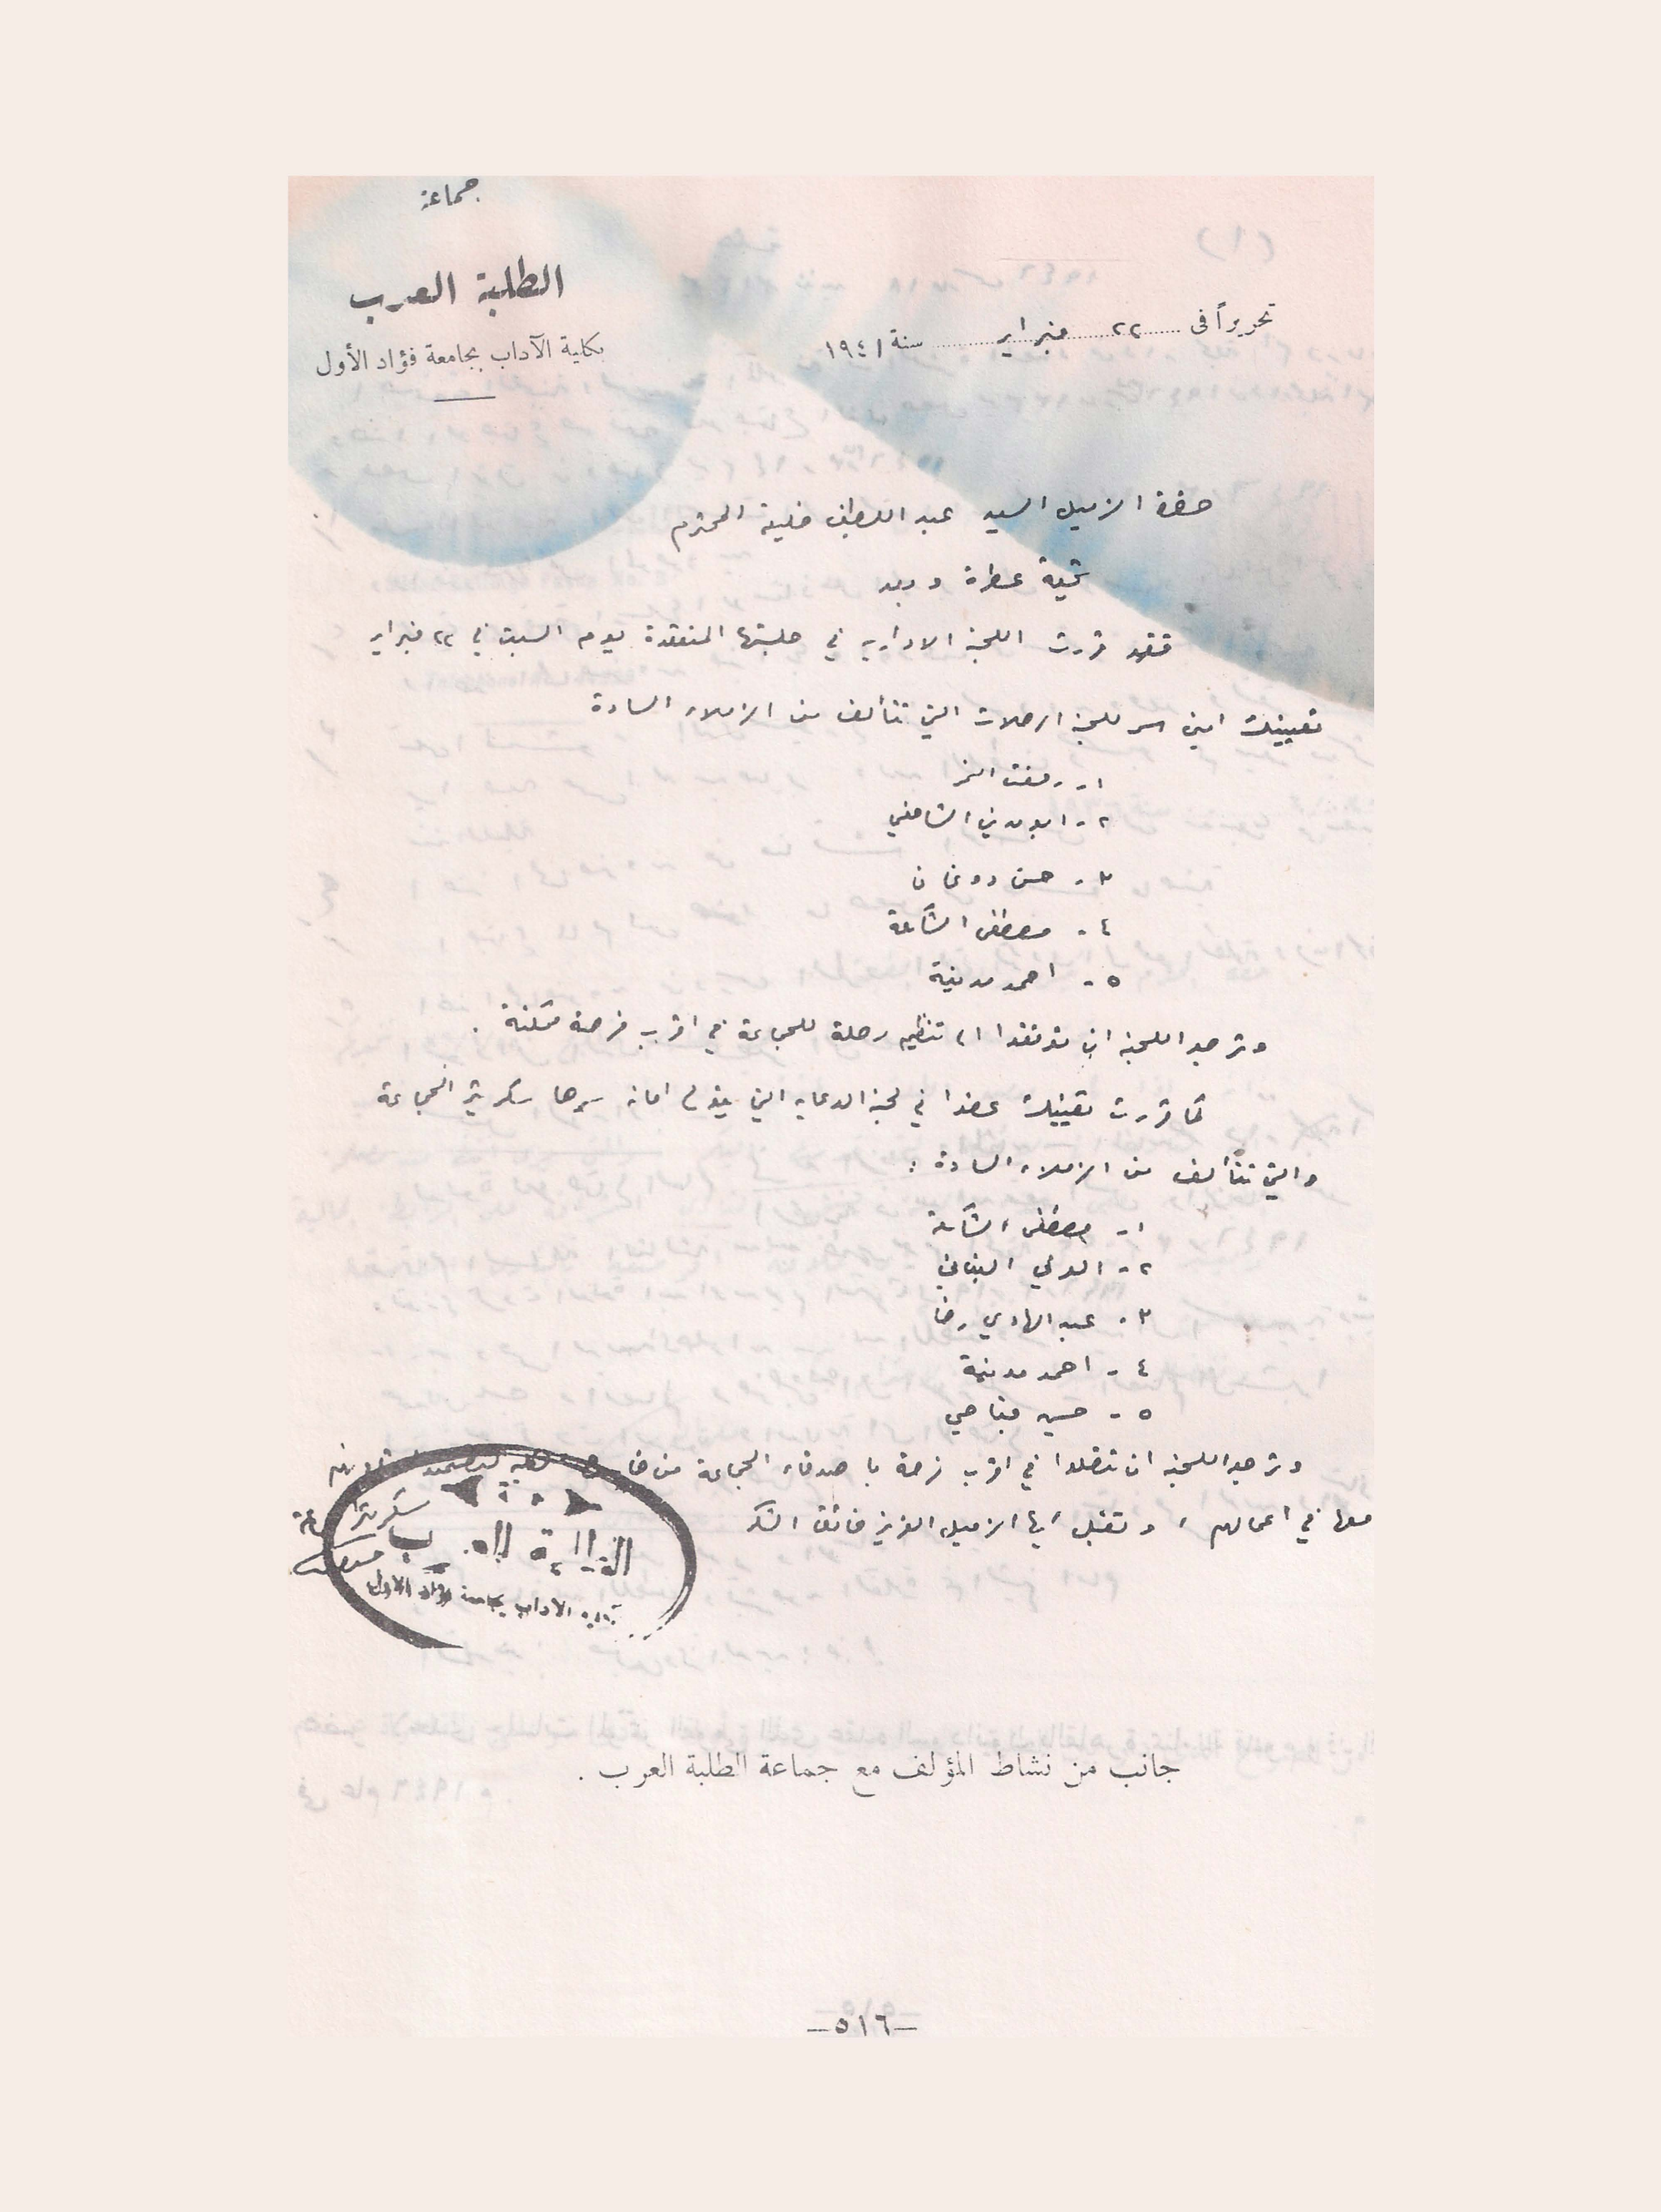 جماعة
الطلبة العرب
بكلية الآداب بجامعة فؤاد الأول
تحريراً فى ٢٢ فبراير سنة ١٩٤١
حضرة الزميل السيد عبد اللطيف خليفة المحترم
تحية عطرة وبعد
فقد قررت اللجنة الادارية في جلستها المنعقدة يوم السبت في ٢٢ فبراير
تعيينك امين سر للجنة الرحلات التي تتألف من الزملاء السادة
١- رفعت النمر
٢- ابو مدين الشافعي
٣- حسن دوغان
٤- مصطفى الشكعة
٥- احمد مدينة
وترجو اللجنة ان توفقوا الى تنظيم رحلة للجماعة في اقرب فرصة ممكنة .
كما قررت تعيينك عضوا في لجنة الدعاية التي يتولى امانة سرها سكرتير الجماعة
والتي تتألف من الزملاء السادة :
١- مصطفى الشكعة
٢- الدلي
٣- عبد الهادي رضا
٤- احمد مدينة
٥- حسين
وترجو اللجنة ان تتصلوا في اقرب فرصة با صدقاء الجماعة من
معها في اعمالهم ، وتقبل ايها الزميل العزيز فائق الشكر
سكرتير
العرب
بكلية الآداب بجامعة فؤاد الاول
جانب من نشاط المؤلف مع جماعة الطلبة العرب .
–٥١٦–